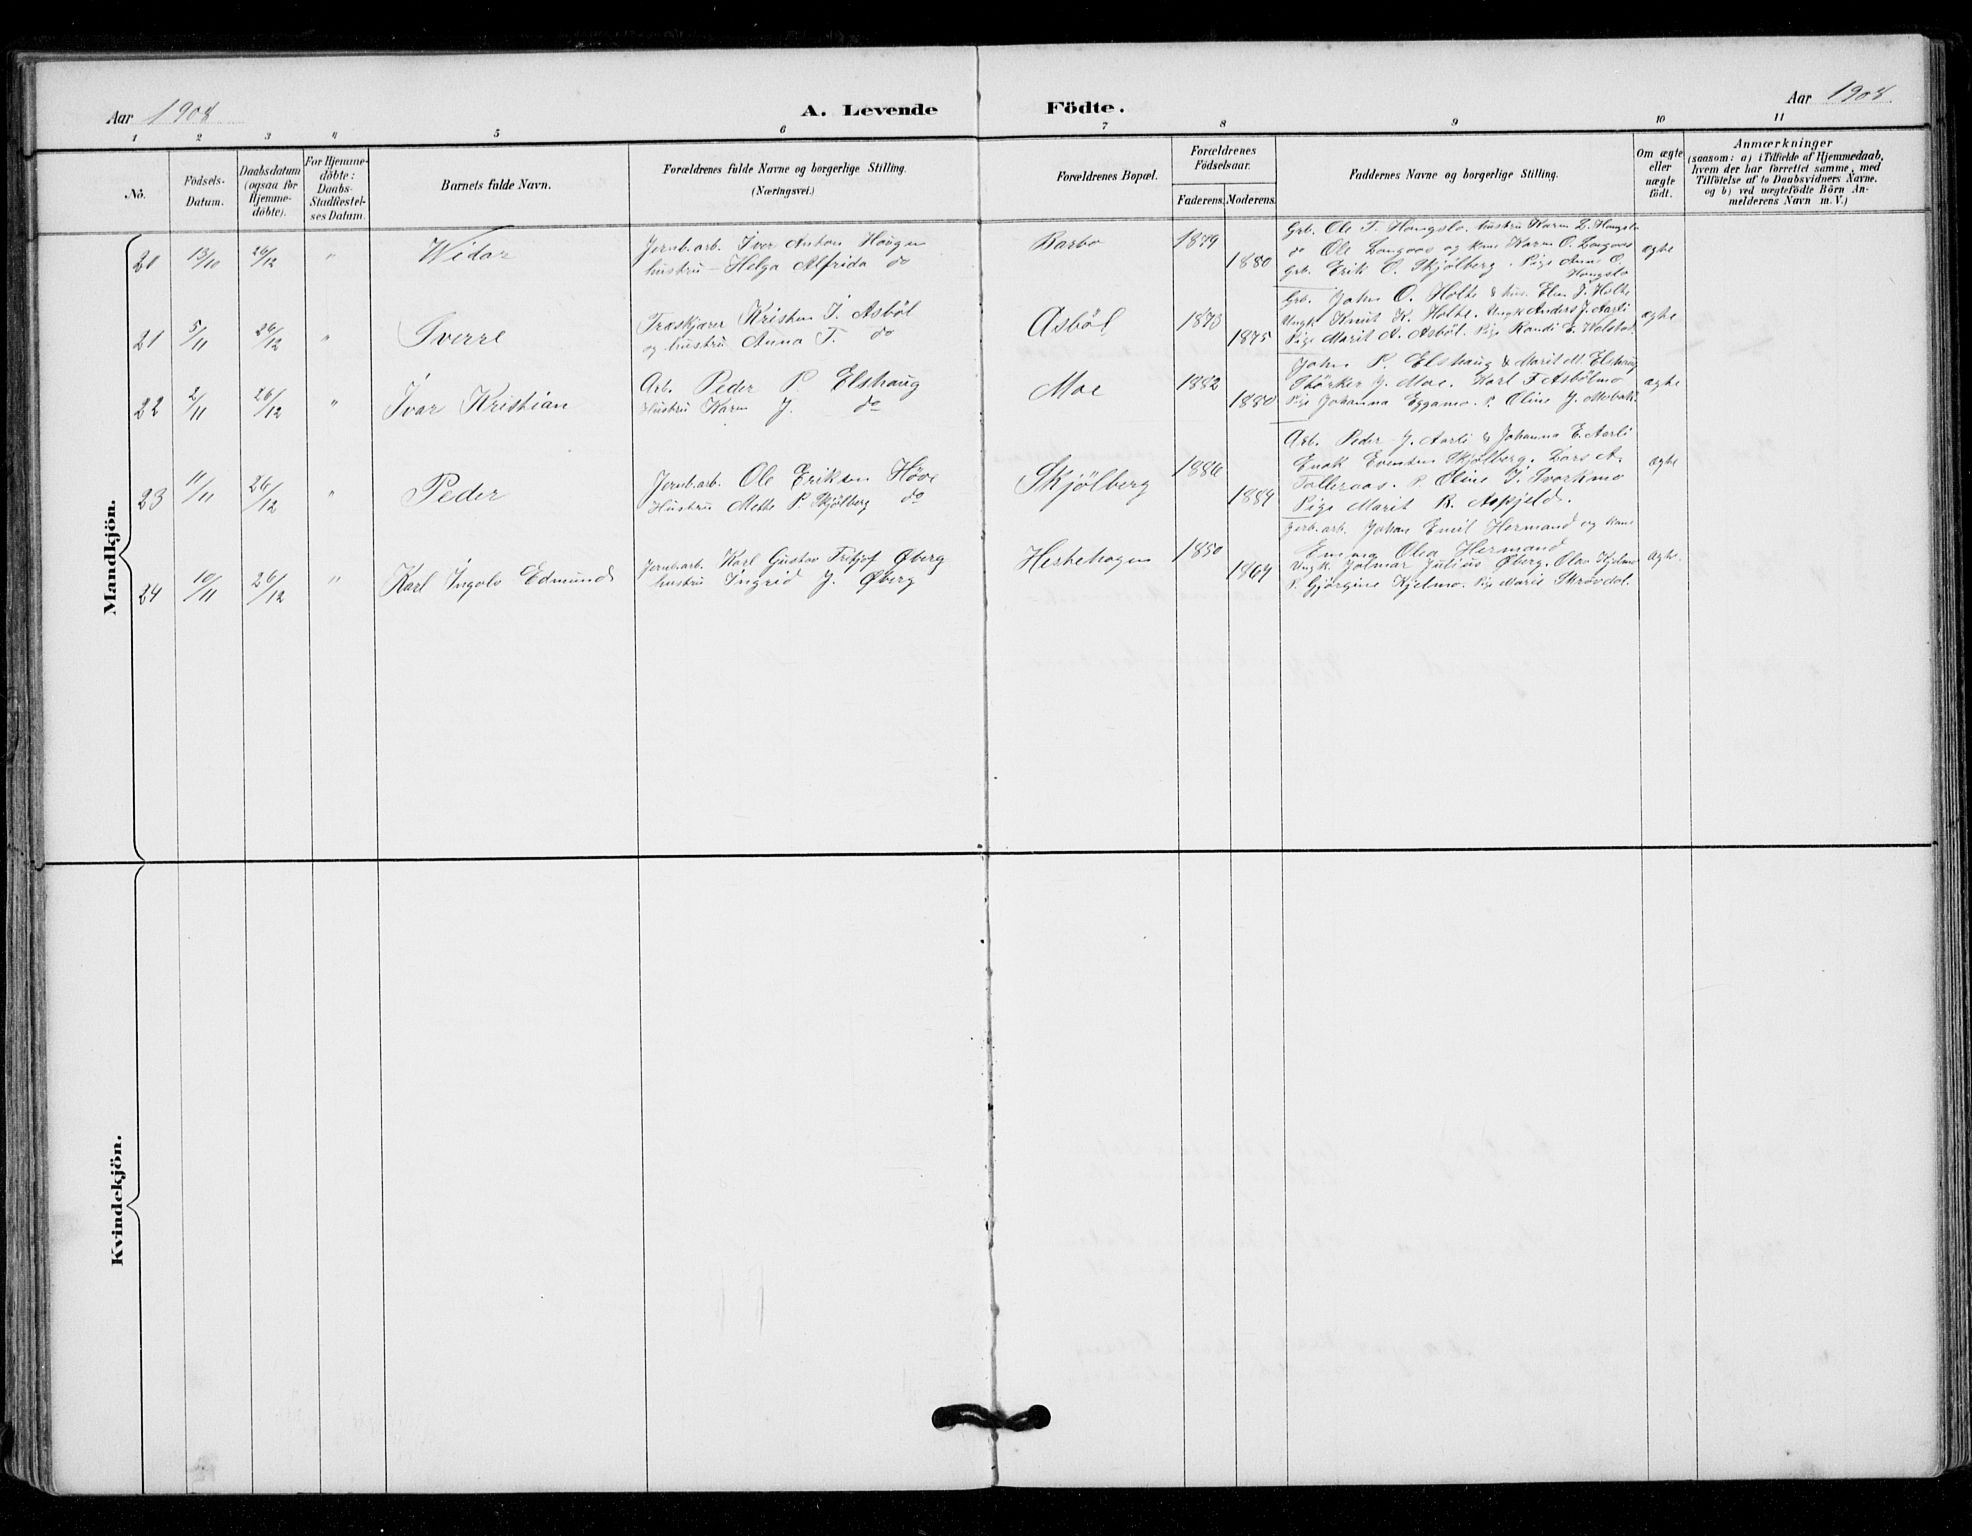 Aar 1908
A. Levende Födte.
Aar 1908.
1 2 3 4 5 6 7 8 9 10 11
No.
Födsels-Datum.
Daabsdatum (ogsaa for Hjemmedöbte).
For Hjemmedöbte: Daabs-Stadfæstelses Datum.
Barnets fulde Navn.
Forældrenes fulde Navne og borgerlige Stilling.
(Næringsvei.)
Forældrenes Bopæl.
Forældrenes Födselsaar.
Faderens. Moderens.
Faddernes Navne og borgerlige Stilling.
Om ægte eller uægte födt.
Anmærkninger
(saasom: a) i Tilfælde af Hjemmedaab, hvem der har forrettet samme, med Tilföielse af to Daabsvidners Navne, og b) ved uægtefödte Börn Anmelderens Navn m. V.)
Mandkjön.
20 13/10 26/12 " Widar
Jernb.arb. Iver Anton Haugen
hustru - Helga Alfrida do
Barbo 1879 1880
Grb. Ole T. Hongslo, hustru Karen L. Hongslo
do Ole Langaas og kone Karen O. Langaas
Grb. Erik O. Skjølberg. Pige Anne O. Hongslo
ægte
21 5/11 26/12 " Sverre
Træskjærer Kristen I. Asböl
og hustru Anna T. do
Asböl 1873 1875
Grb. John O. Holte & hus. Elen J. Holte
Ungk. Knut K. Holte. Ungk Anders J. Aarli
Pige Marit A. Asböl. Pige Randi E. Holstad
ægte
22 2/11 26/12 " Ivar Kristian
Arb. Peder P Elshaug
Hustru Karen J. do
Moe 1882 1880
John P. Elshaug & Marit M. Elshaug
Størker J. Moe. Karl F Asbölmo
Pige Johanna Eggamo. P. Oline J.
ægte
23 11/11 26/12 " Peder
Jernb.arb. Ole Eriksen Höve
Hustru Mette P. Skjølberg do
Skjølberg 1886 1884
Arb. Peder J. Aarli & Johanna E. Aarli
Enok Evensen Skjølberg. Lars A.
Tolleraas. P. Oline I. Svorkmo
Pige Marit R. Askjeld.
ægte
24 10/11 26/12 " Karl Ingolv Edmund
Jernb.arb. Karl Gustav Fritjof Øberg
hustru Ingrid J. Øberg
Heshehagen 1850 1864
Jerb.arb. Johan Emil Hermand og kone
Emma Olea Hermand
Ungk. Jalmar Julius Øberg. Olav Kjelmo
P. Gjørgine Kjelmo. Pige Marie Skrövdal.
ægte.
Kvindekjön.